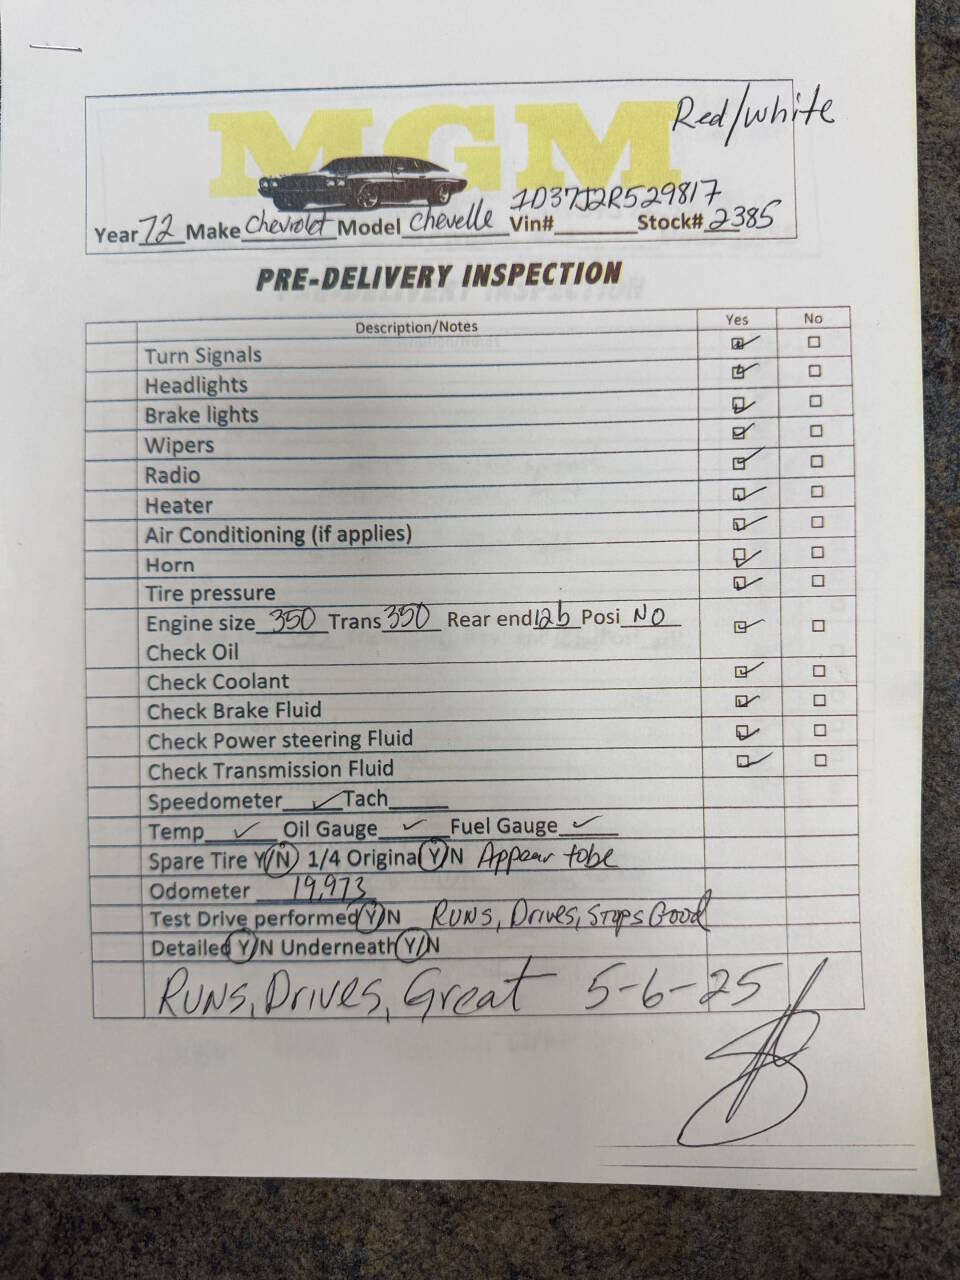 MGM
Red/white
Year 72 Make Chevrolet Model Chevelle Vin# 1D37J2R529817 Stock# 2385
PRE-DELIVERY INSPECTION
Description/Notes Yes No
Turn Signals
Headlights
Brake lights
Wipers
Radio
Heater
Air Conditioning (if applies)
Horn
Tire pressure
Engine size 350 Trans 350 Rear end 12b Posi NO
Check Oil
Check Coolant
Check Brake Fluid
Check Power steering Fluid
Check Transmission Fluid
Speedometer ✓ Tach
Temp ✓ Oil Gauge ✓ Fuel Gauge ✓
Spare Tire Y/N 1/4 Original Y/N Appear to be
Odometer 19,973
Test Drive performed Y/N Runs, Drives, Stops Good
Detailed Y/N Underneath Y/N
Runs, Drives, Great 5-6-25